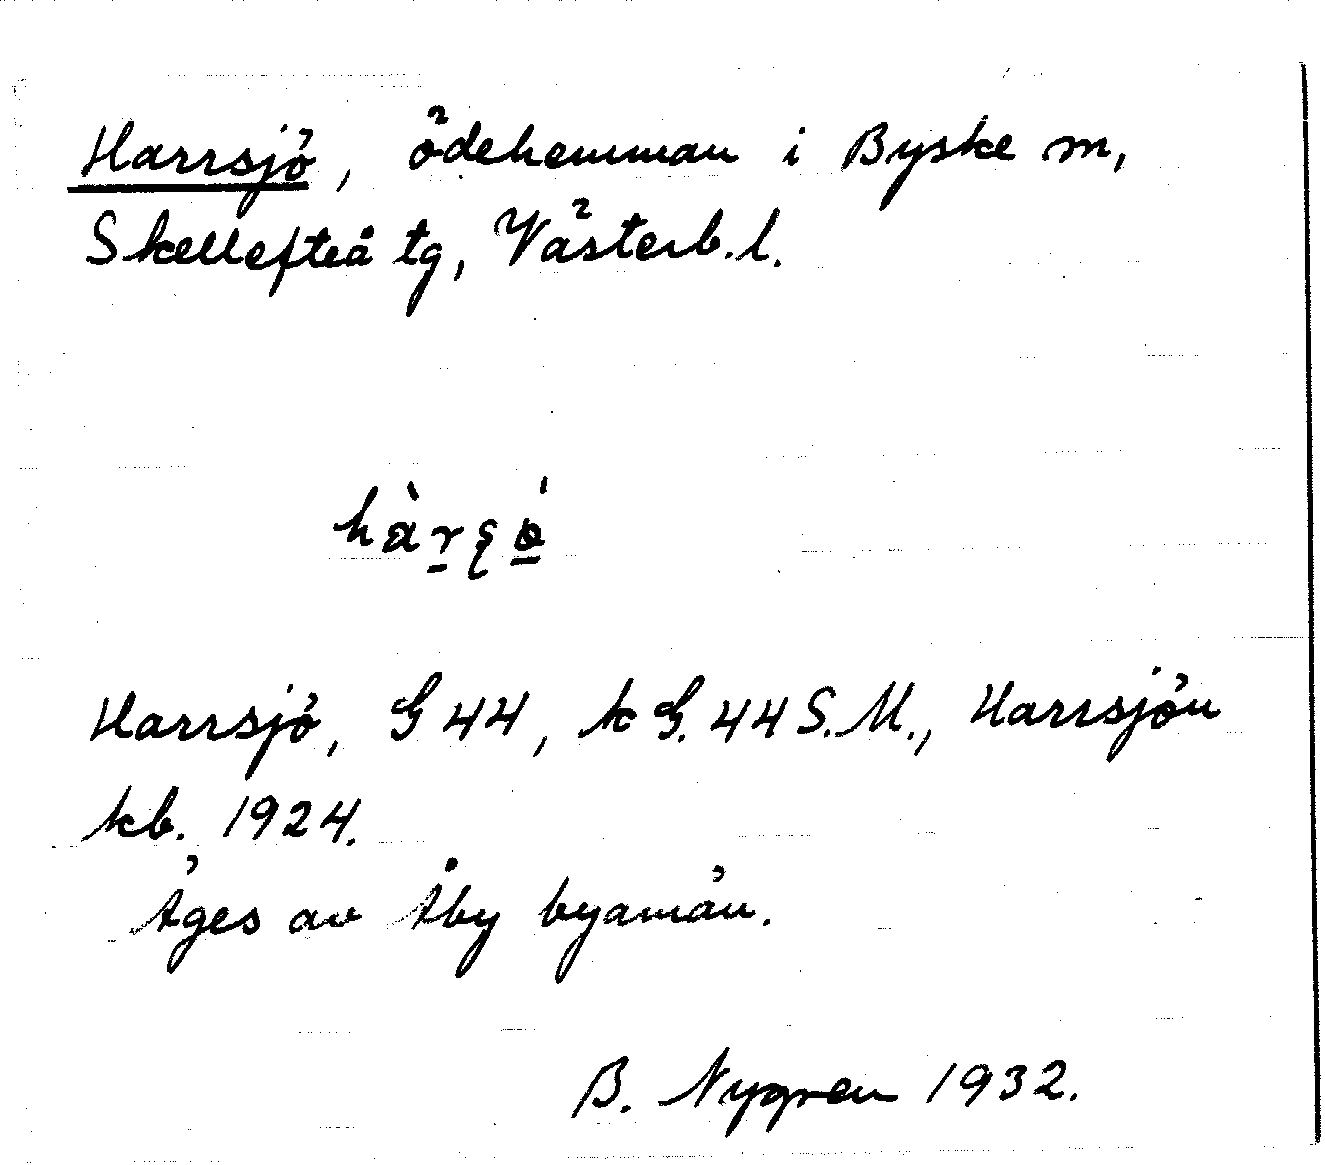 Harrsjö, ödehemman i Byske sn,
Skellefteå tg, Västerb. l.
Harrsjö, G 44, k G. 44 S.M., Harrsjön
kb. 1924.
Äges av Åby byamän.
B. Nygren 1932.